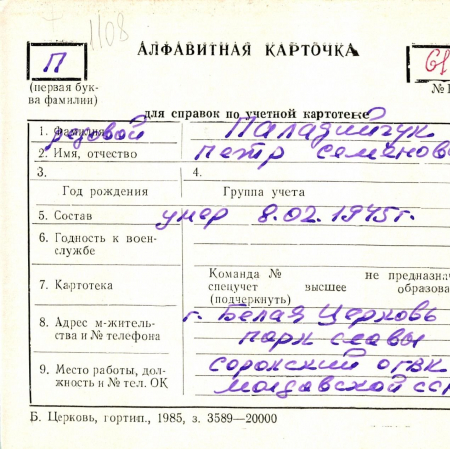 1108
АЛФАВИТНАЯ КАРТОЧКА
П
(первая бук-
ва фамилии)
для справок по учетной картотеке
1. Фамилия
рядовой
2. Имя, отчество Петр Семенов
3. 4.
Год рождения Группа учета
5. Состав умер 8.02.1945г.
6. Годность к воен-
службе
7. Картотека
Команда № не предназна
спецучет высшее образова
(подчеркнуть)
8. Адрес м-житель-
ства и № телефона
г. Белая Церковь
парк славы
9. Место работы, дол-
жность и № тел. ОК
Сорокский ОГВК
Молдавской ССР
Б. Церковь, гортип., 1985, з. 3589—20000